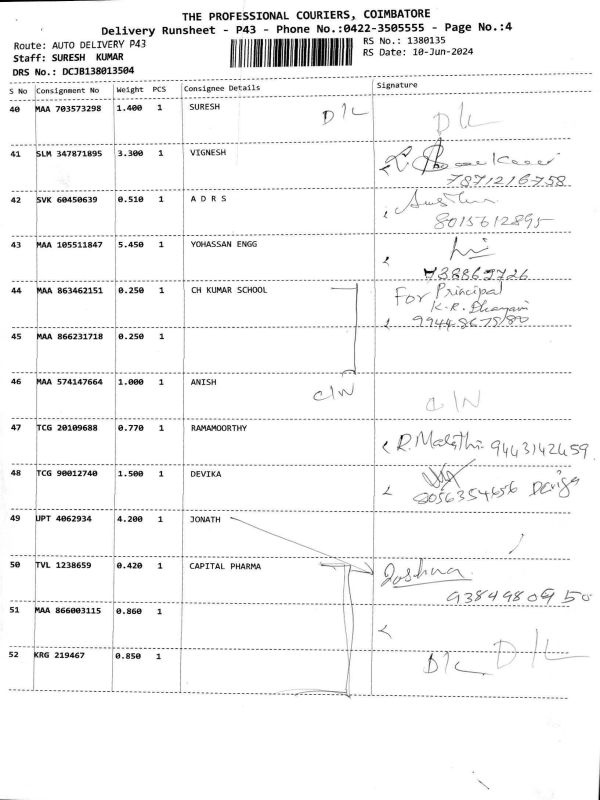 THE PROFESSIONAL COURIERS, COIMBATORE
Delivery Runsheet - P43 - Phone No.:0422-3505555 - Page No.:4
Route: AUTO DELIVERY P43
RS No.: 1380135
Staff: SURESH KUMAR
RS Date: 10-Jun-2024
DRS No.: DCJB138013504
S No Consignment No Weight PCS Consignee Details Signature
40 MAA 703573298 1.400 1 SURESH D/L D/L
41 SLM 347871895 3.300 1 VIGNESH
7871216758
42 SVK 60450639 0.510 1 A D R S
8015612895
43 MAA 105511847 5.450 1 YOHASSAN ENGG
44 MAA 863462151 0.250 1 CH KUMAR SCHOOL For Principal
K.R.
45 MAA 866231718 0.250 1
46 MAA 574147664 1.000 1 ANISH C/N C/N
47 TCG 20109688 0.770 1 RAMAMOORTHY R. Malathi 9443142459
48 TCG 90012740 1.500 1 DEVIKA
8056354656
49 UPT 4062934 4.200 1 JONATH
50 TVL 1238659 0.420 1 CAPITAL PHARMA Joshua
9384980950
51 MAA 866003115 0.860 1
52 KRG 219467 0.850 1 D/L D/L